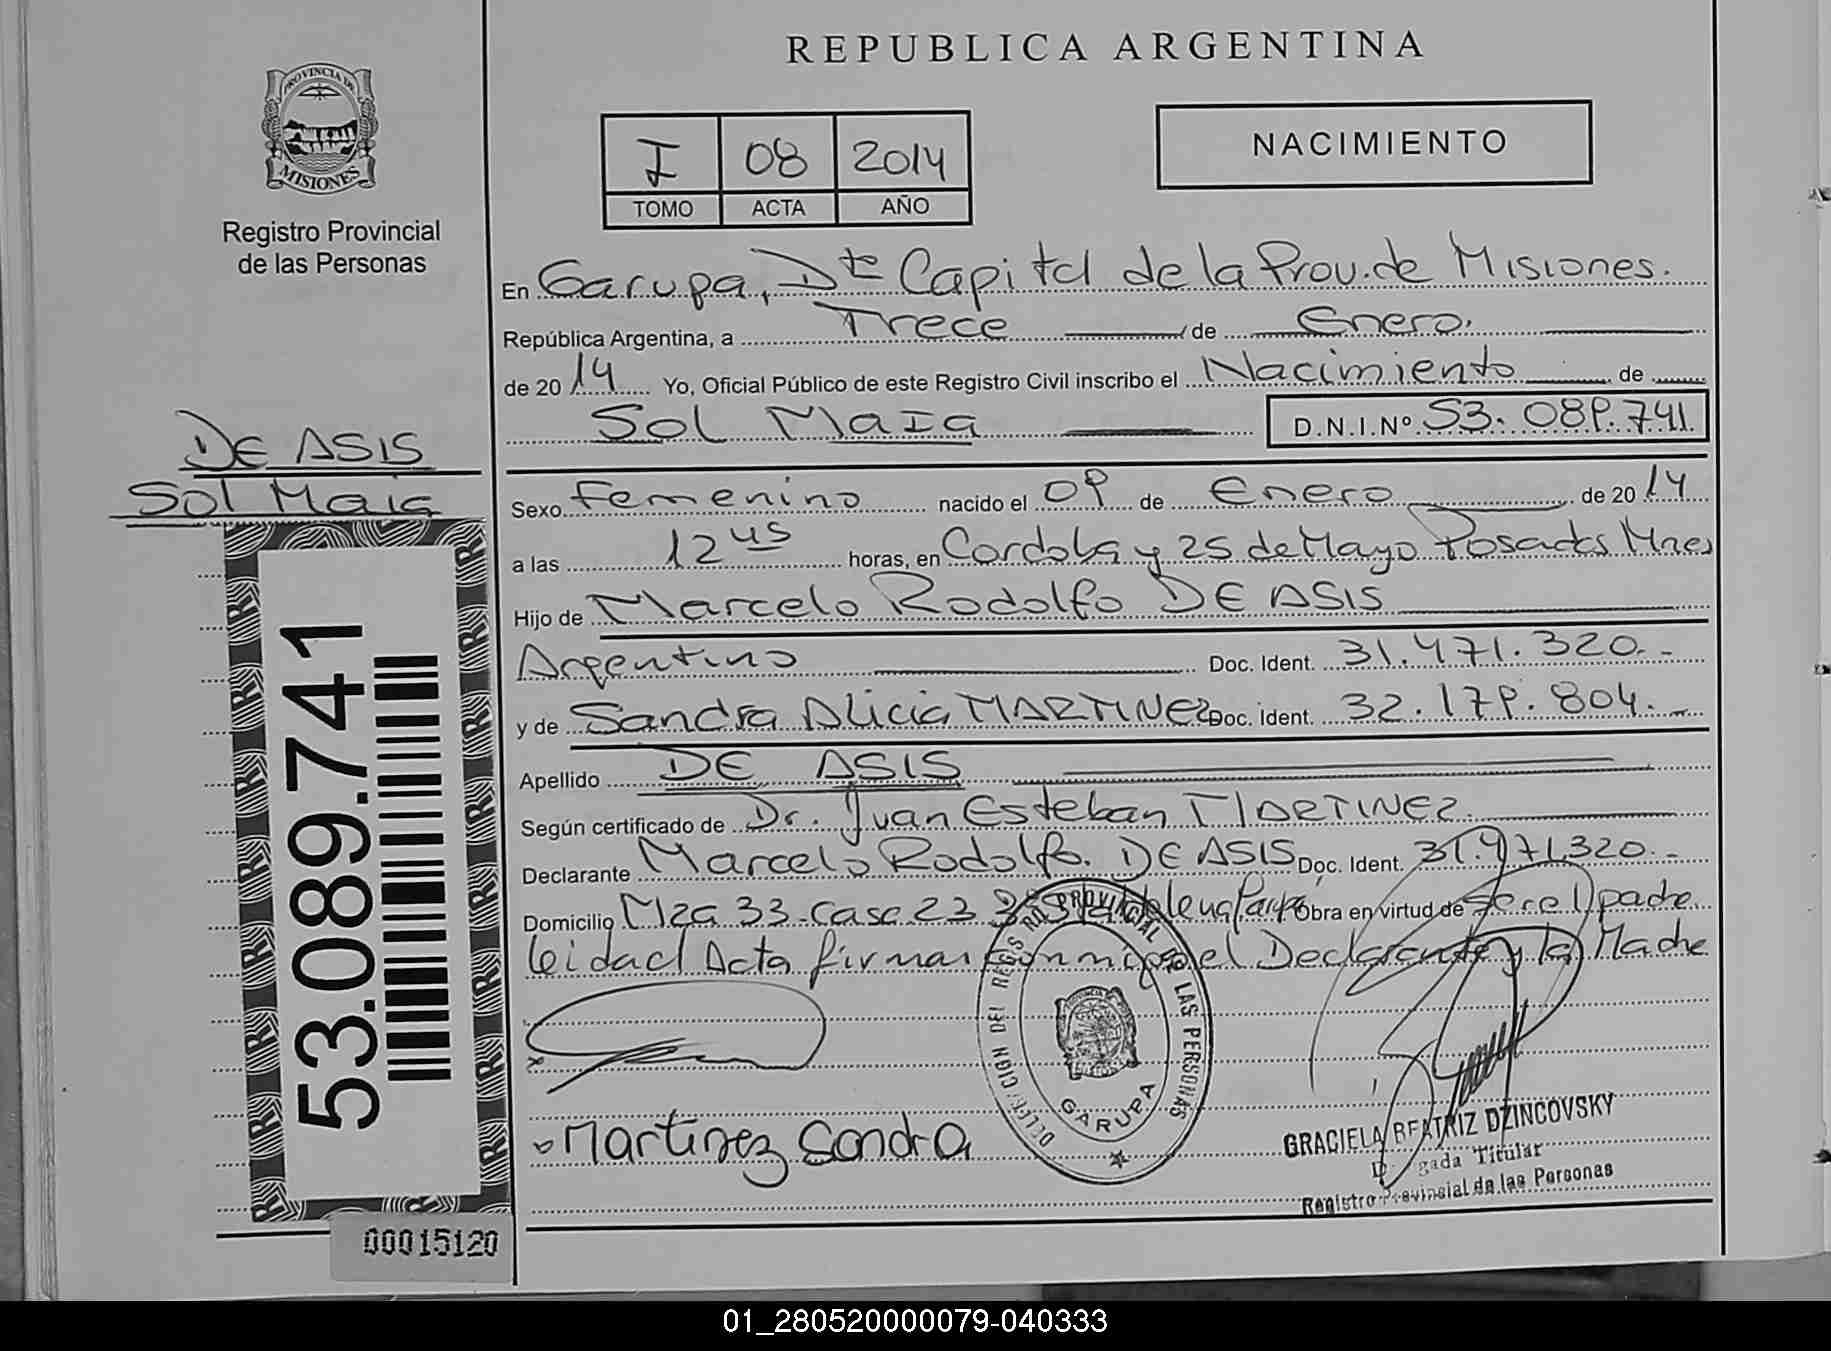 REPUBLICA ARGENTINA
PROVINCIA DE
MISIONES
Registro Provincial
de las Personas
I 08 2014
TOMO ACTA AÑO
NACIMIENTO
En Garupa, Dto Capital de la Prov. de Misiones.
República Argentina, a Trece de Enero.
de 2014 Yo, Oficial Público de este Registro Civil inscribo el Nacimiento de
Sol Maia D.N.I.Nº 53.089.741
DE ASIS
Sol Maia
Sexo Femenino nacido el 09 de Enero de 2014
a las 12 45 horas, en Cordoba y 25 de Mayo Posadas Mnes
Hijo de Marcelo Rodolfo DE ASIS
Argentino Doc. Ident. 31.471.320.-
y de Sandra Alicia MARTINEZ Doc. Ident. 32.179.804.-
Apellido DE ASIS
Según certificado de Dr. Juan Esteban MARTINEZ.
Declarante Marcelo Rodolfo. DE ASIS Doc. Ident. 31.471.320.-
Domicilio Mza 33-Casa 23 Obra en virtud de ser el padre
leida el Acta firman conmigo el Declarante y la Madre
53.089.741
DELEGACION DEL REGISTRO PROVINCIAL DE LAS PERSONAS
GARUPA
Martinez Sandra
GRACIELA BEATRIZ DZINCOVSKY
Titular
Registro Provincial de las Personas
00015120
01_280520000079-040333